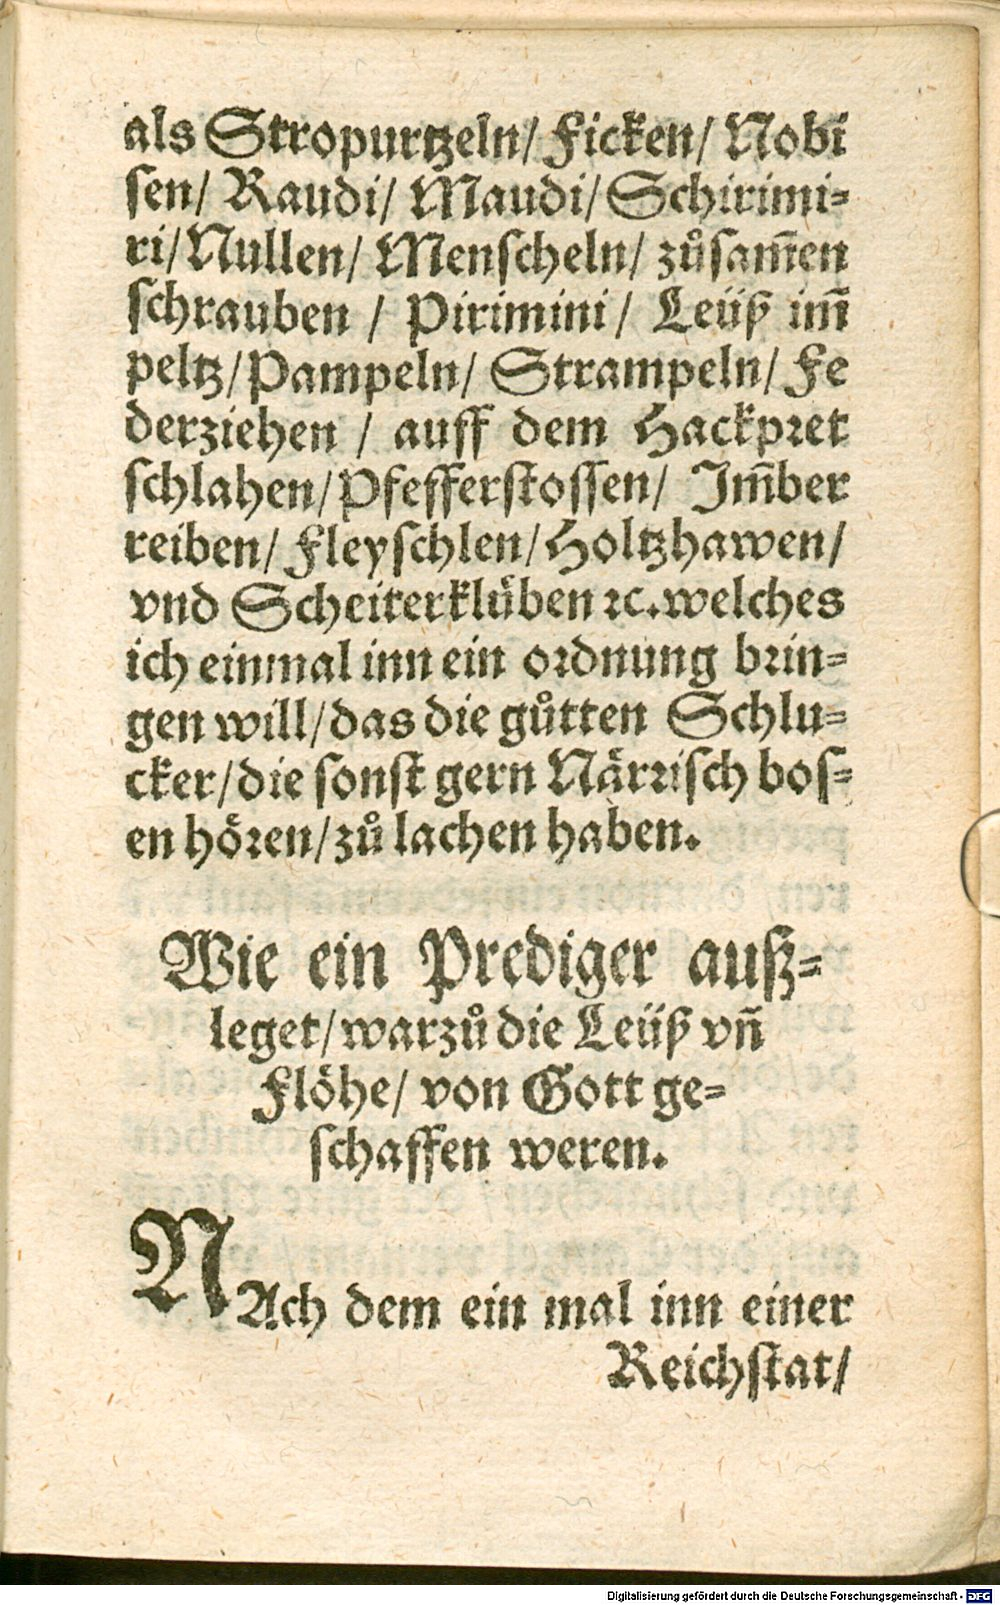 als Stropurtzeln/ Ficken/ Nobi
sen/ Raudi/ Maudi/ Schirimi⸗
ri/ Nullen/ Menscheln/ zůsam̃en
schrauben / Pirimini/ Leüß im̃
peltz/ Pampeln/ Strampeln/ Fe
derziehen / auff dem Hackpret
schlahen/ Pfefferstossen/ Im̃ber
reiben/ Fleyschlen/ Holtzhawen/
vnd Scheiterklüben ꝛc. welches
ich einmal inn ein ordnung brin⸗
gen will/ das die gůtten Schlu⸗
cker/ die sonst gern Närrisch bos⸗
en hören/ zů lachen haben.
Wie ein Prediger auß⸗
leget/ warzů die Leüß vñ
Flöhe/ von Gott ge⸗
schaffen weren.
NAch dem ein mal inn einer
Reichstat/
Digitalisierung gefördert durch die Deutsche Forschungsgemeinschaft - DFG